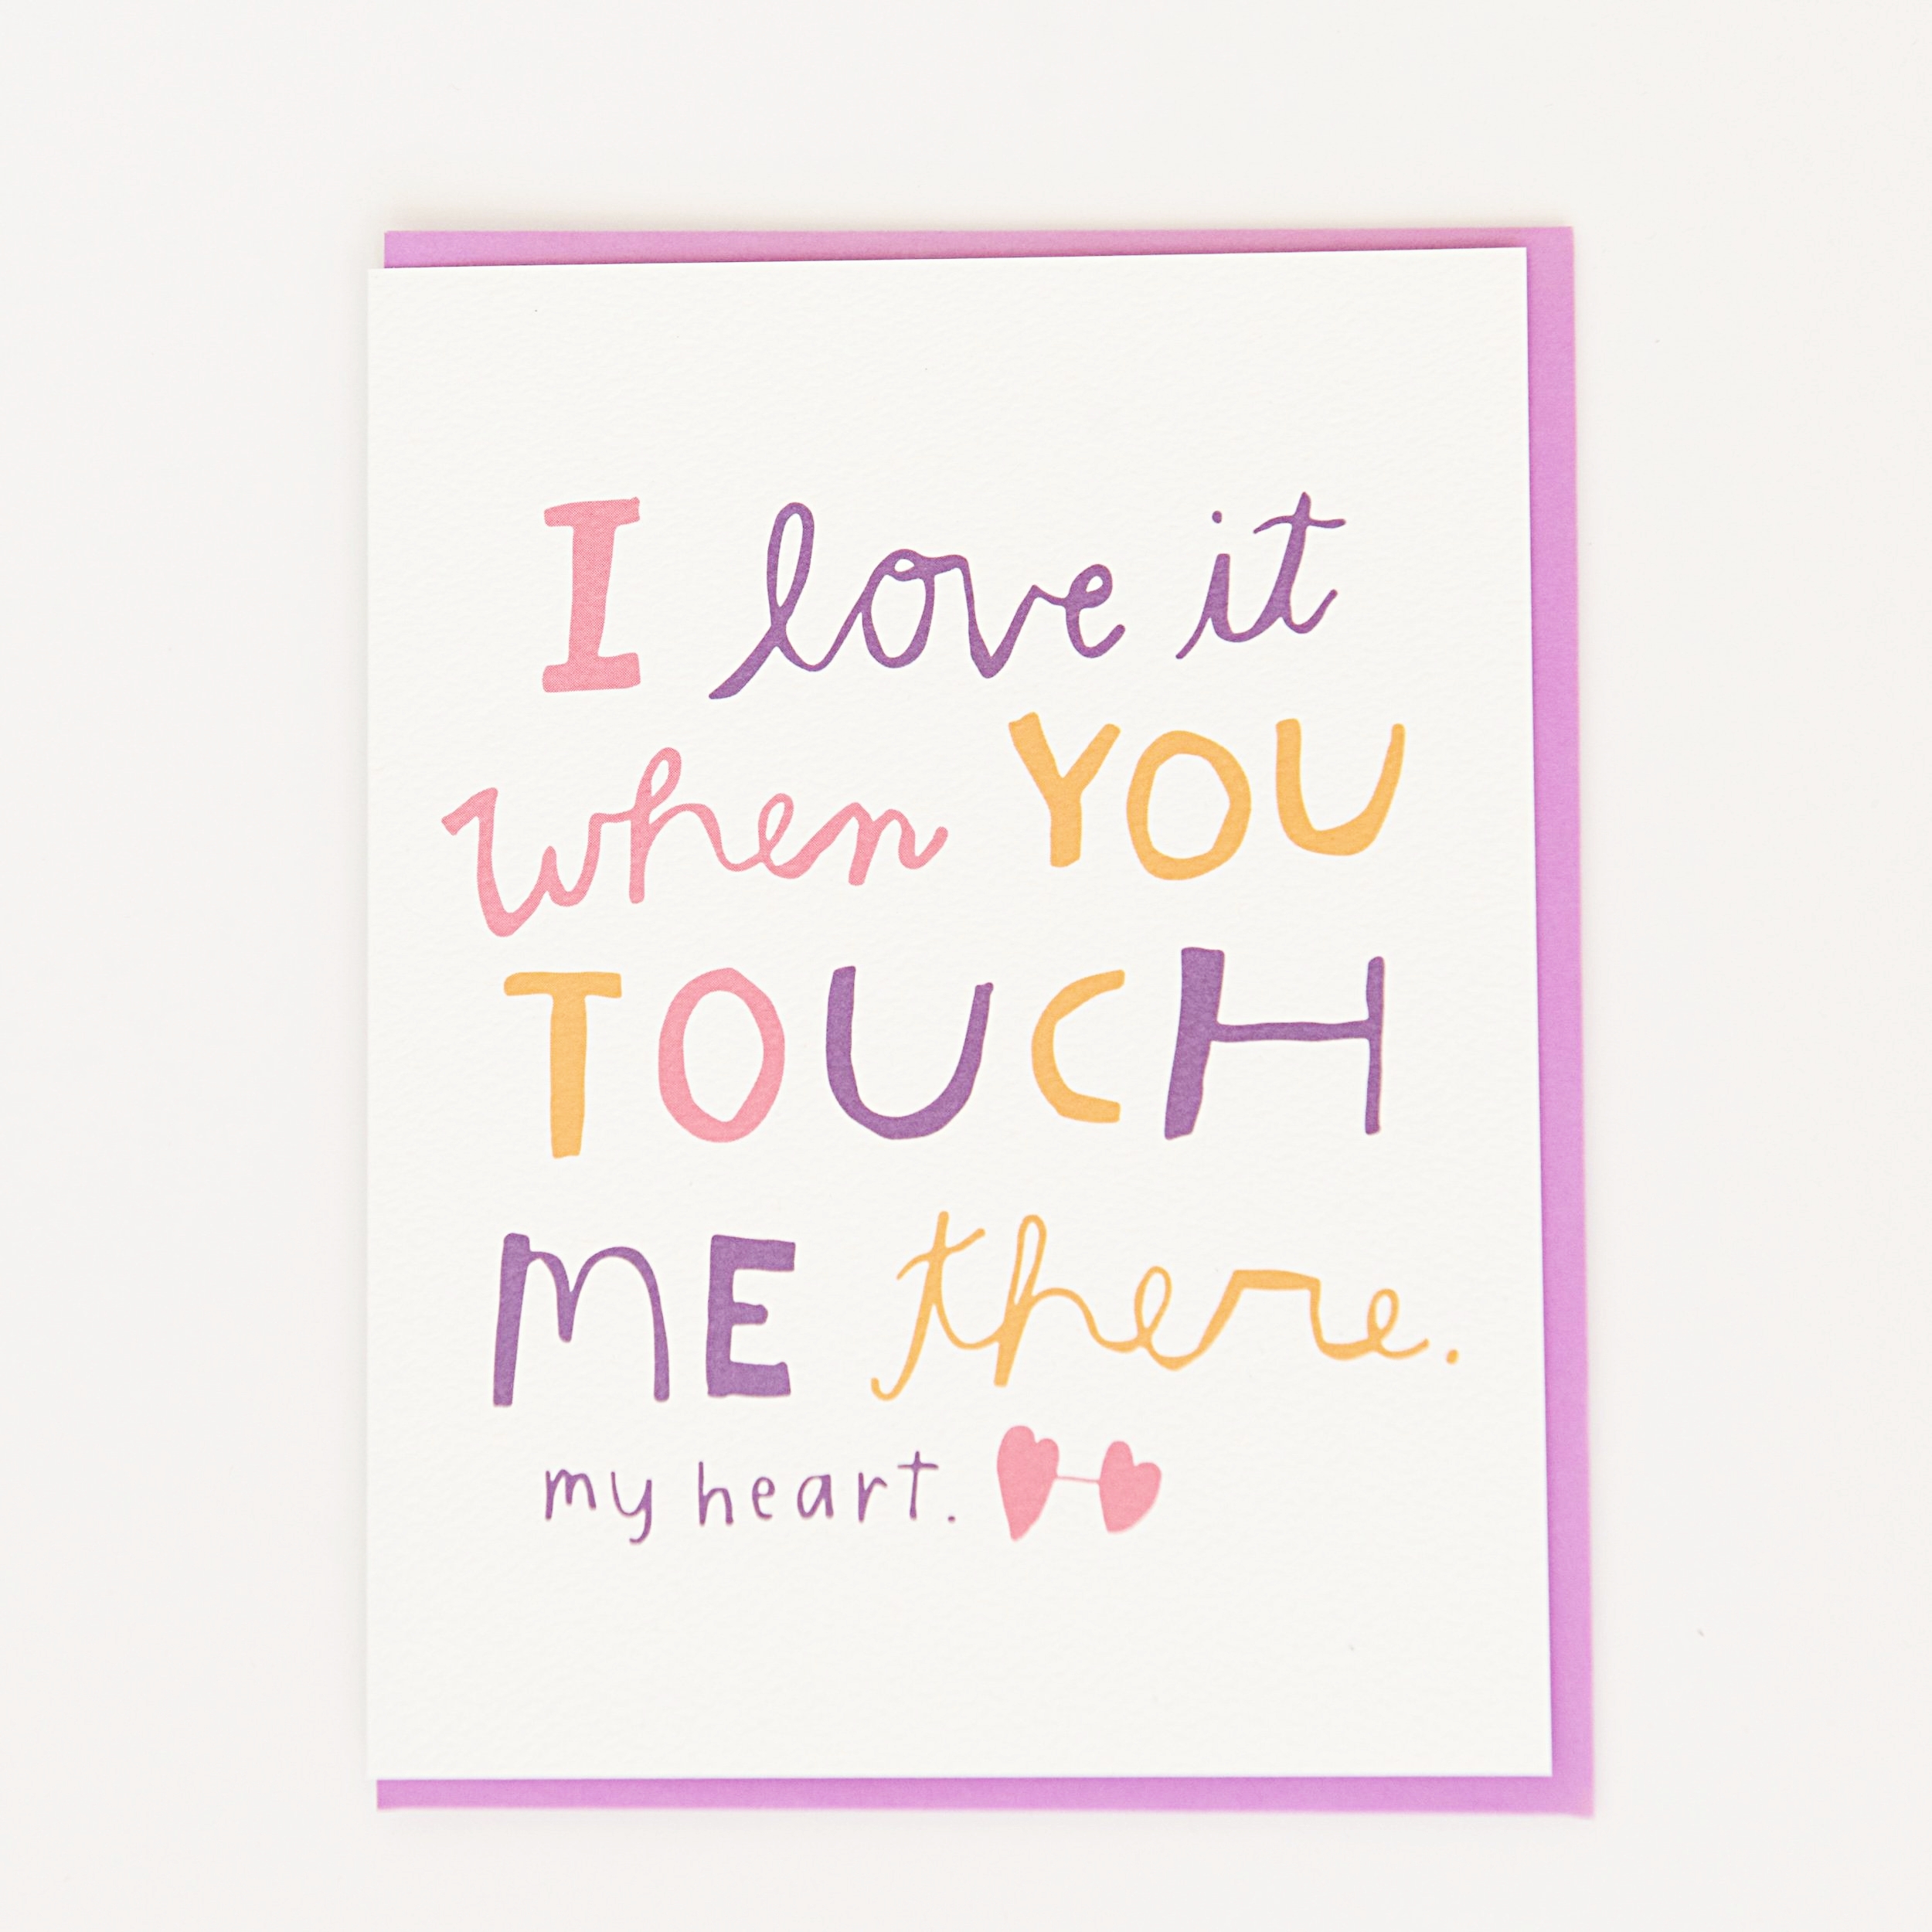 I love it
when YOU
TOUCH
ME there.
my heart.